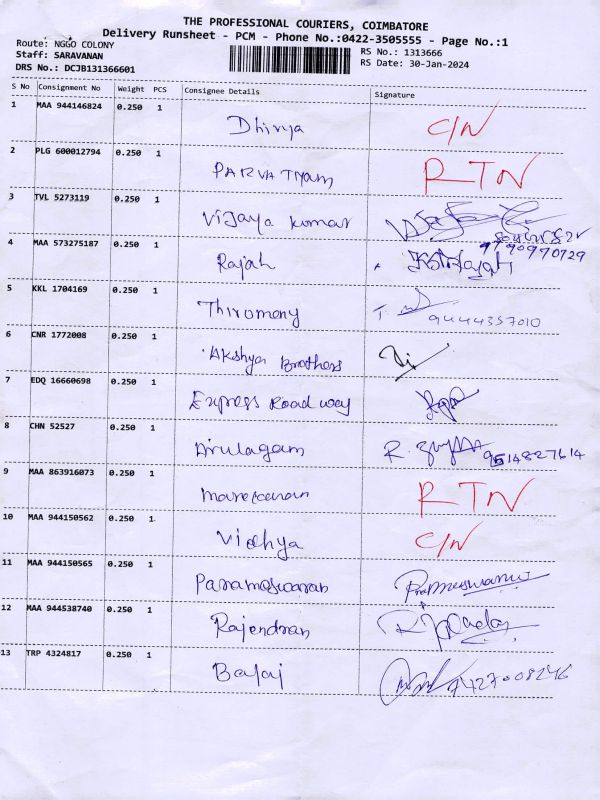 THE PROFESSIONAL COURIERS, COIMBATORE
Delivery Runsheet - PCM - Phone No.:0422-3505555 - Page No.:1
Route: NGGO COLONY
Staff: SARAVANAN
DRS No.: DCJB131366601
RS No.: 1313666
RS Date: 30-Jan-2024
S No Consignment No Weight PCS Consignee Details Signature
1 MAA 944146824 0.250 1 Dhivya C/N
2 PLG 600012794 0.250 1 PARVATHYam RTN
3 TVL 5273119 0.250 1 Vijaya kumar
4 MAA 573275187 0.250 1 Rajah 9790970729
5 KKL 1704169 0.250 1 Thiromony 9444357010
6 CNR 1772008 0.250 1 Akshya Brothers
7 EDQ 16660698 0.250 1 Express Road way
8 CHN 52527 0.250 1 Arulagam 9514827614
9 MAA 863916073 0.250 1 RTN
10 MAA 944150562 0.250 1 Vidhya C/N
11 MAA 944150565 0.250 1 Parameswaran
12 MAA 944538740 0.250 1 Rajendran
13 TRP 4324817 0.250 1 Balaj